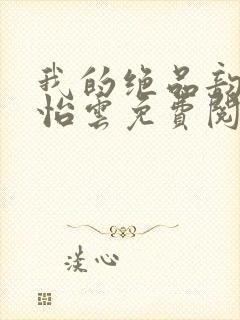 我的绝品
怡雲免費閱
淡心